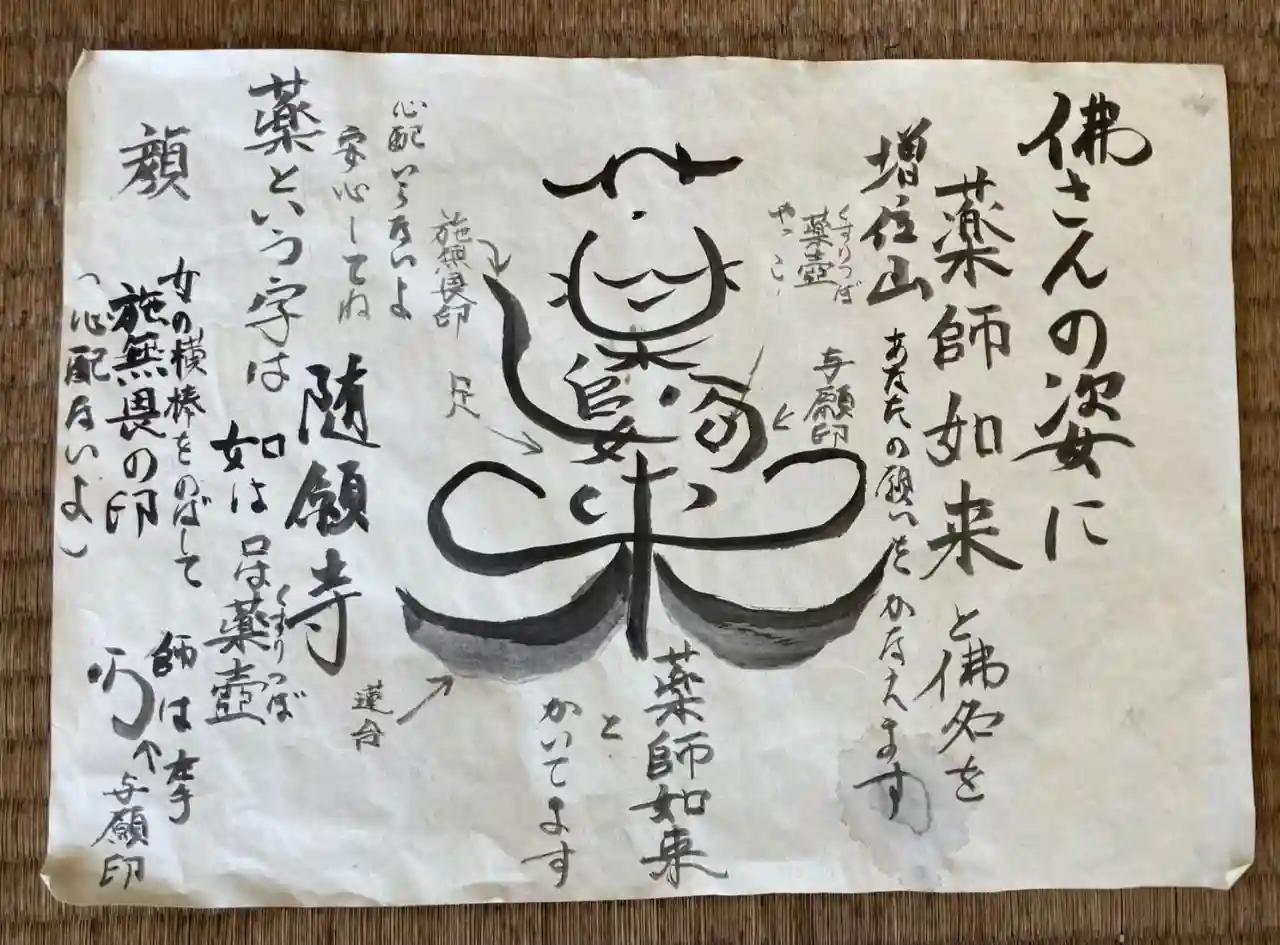 佛さんの姿に
薬師如来と佛名を
増位山
あなたの願いをかなえます
くすりつぼ
薬壺
与願印
薬師如来
と
かいてます
施無畏印
足
蓮台
心配いらないよ
安心してね
随願寺
薬という字は
顔
如は口は薬壺
くすりつぼ
女の横棒をのばして
施無畏の印
(心配ないよ)
師は左手
与願印